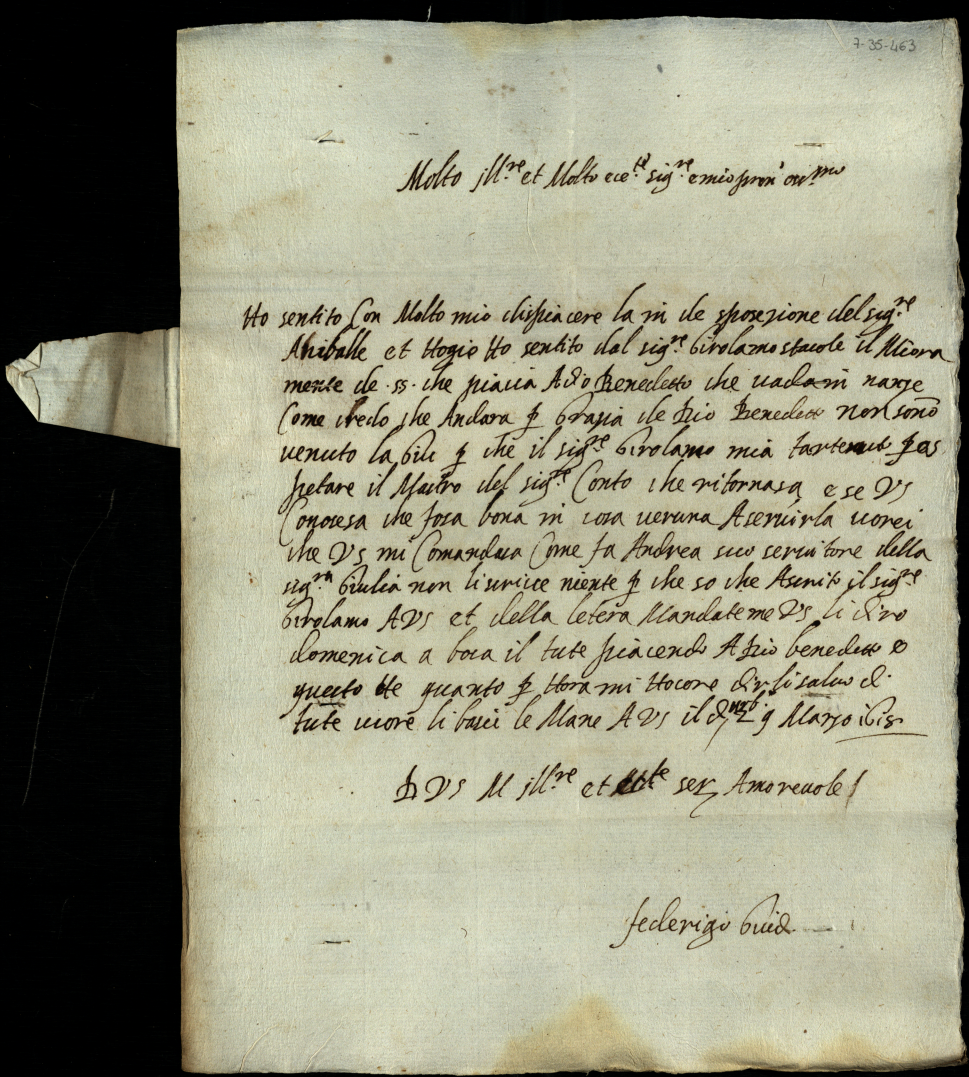 7-35-463
Molto jll.re et Molto ece.te sig.re e mio pron oss.mo
Ho sentito Con Molto mio dispiacere la in de sposezione del sig.re
Aniballe et Hogie Ho sentito dal sig.re Girolamo il Meiora
mente de .ss. che piacia A dio Benedetto che uada in nanze
Come credo che Andara p Grazia de Dio Benedetto non sono
venuto la p che il sig.re Girolamo mia tartenuto p as
petare il Mastro del sig.re Conto che ritornasa e se VS
Conosesa che fosa bona in cosa veruna A seruirla vorei
che VS mi Comandasa Come fa Andrea suo seruitore della
sig.ra Giulia non li scricce niente p che so che A scrito il sig.re
Girolamo A VS et della letera Mandateme VS li diro
domenica a boca il tute piacendo A Dio benedetto e
questo He quanto p Hora mi Hocore dirli saluo d.
tute core li bascio le Mane A VS il di 9 Marzo 1618
D VS M jll.re et ser Amoreuole
federigo Guid